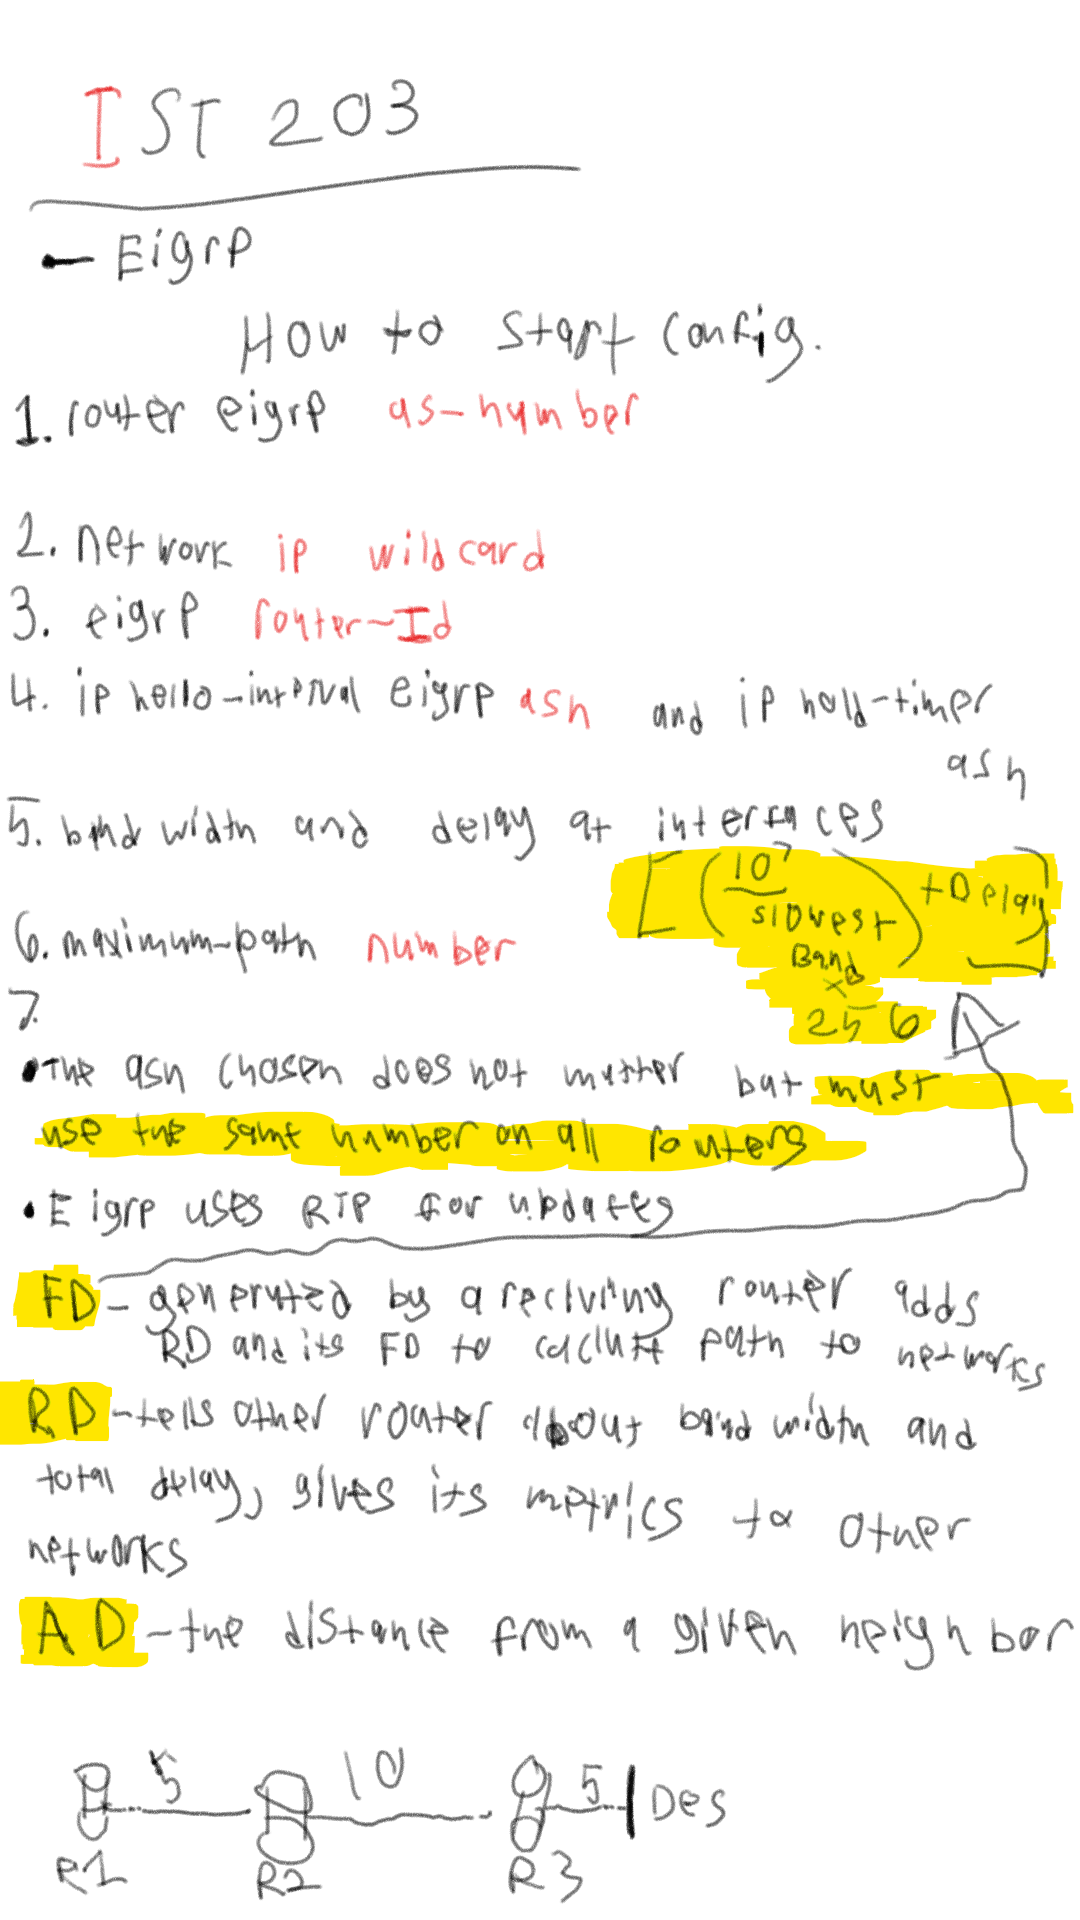 IST 203
- Eigrp
How to start config.
1. router eigrp as-number
2. network ip wildcard
3. eigrp router-Id
4. ip hello-interval eigrp asn and ip hold-timer
asn
5. bandwidth and delay at interfaces
[(10^7 / slowest Band) + Delay]
x
256
6. maximum-path number
7.
• The asn chosen does not matter but must
use the same number on all routers
• Eigrp uses RTP for updates
FD - generated by a reciving router adds
RD and its FD to calclute path to networks
RD - tells other router about bandwidth and
total delay, gives its metrics to other
networks
AD - the distance from a given neighbor
5 10 5 Des
R1 R2 R3